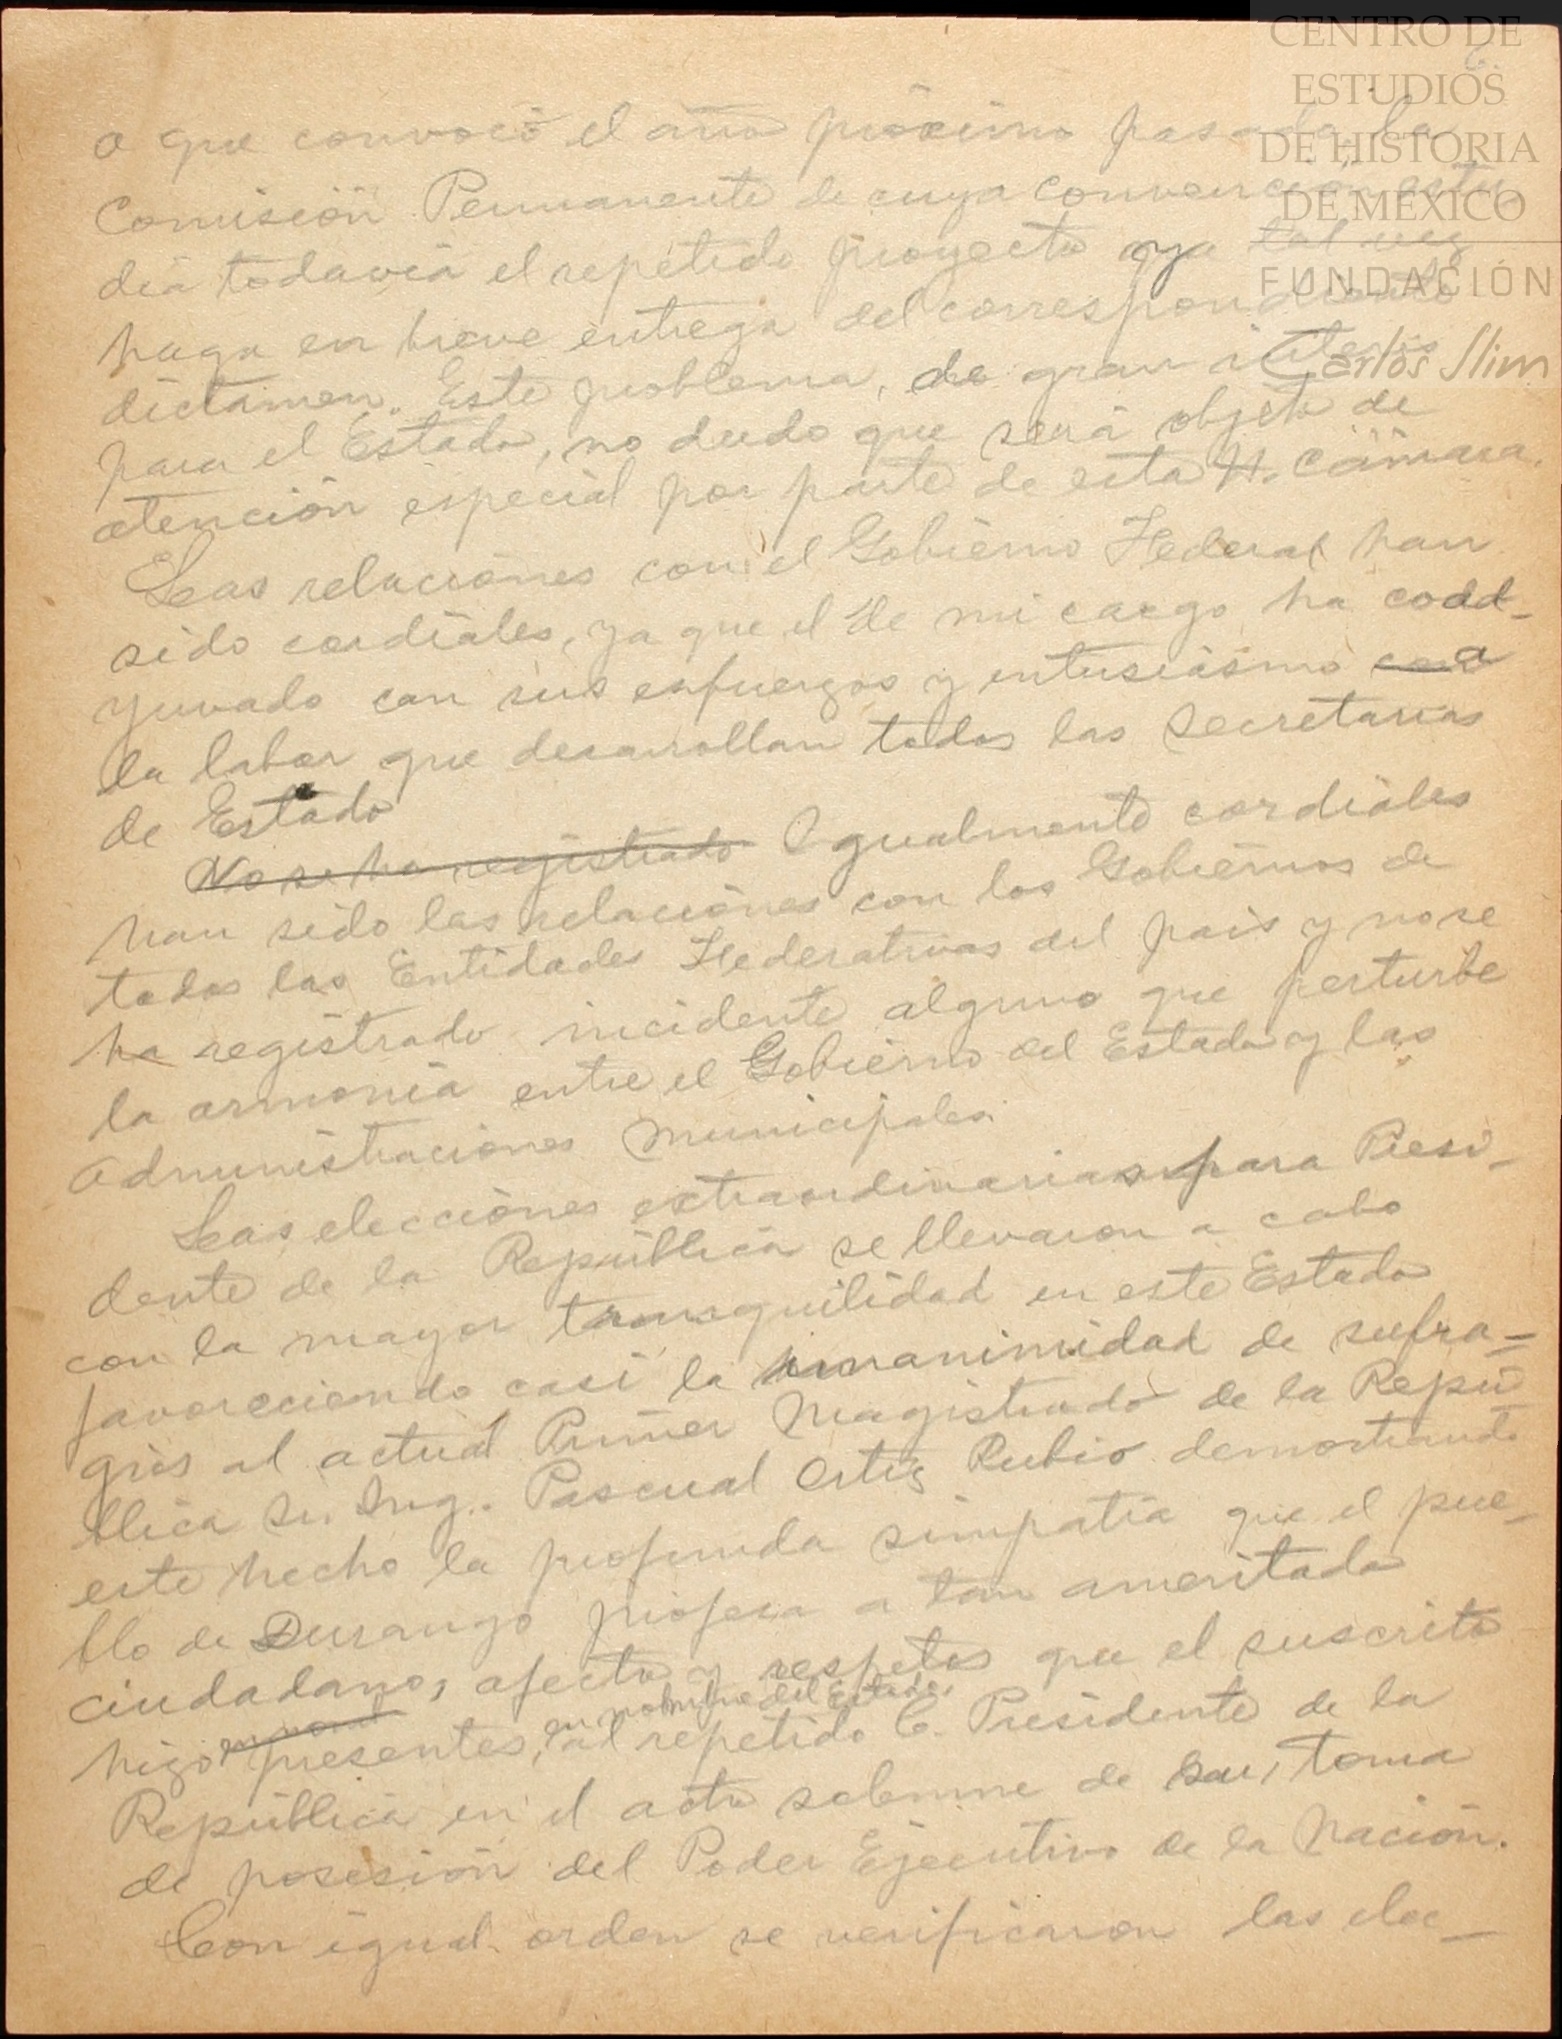 CENTRO DE
ESTUDIOS
DE HISTORIA
DE MÉXICO
FUNDACIÓN
Carlos Slim
6.
a que convocó el año próximo pasado, la
Comisión Permanente de cuya convención estu-
dia todavia el repetido proyecto y ya tal vez
haga en breve entrega del correspondiente
dictamen. Este problema, de gran interés
para el Estado, no dudo que será objeto de
atención especial por parte de esta H. Cámara.
Las relaciones con el Gobierno Federal han
sido cordiales, ya que el de mi cargo ha coad-
yuvado con sus esfuerzos y entusiasmo a
la labor que desarrollan todas las Secretarias
de Estado
No se ha registrado Igualmente cordiales
han sido las relaciones con los Gobiernos de
todas las Entidades Federativas del pais y no se
ha registrado incidente alguno que perturbe
la armonia entre el Gobierno del Estado y las
Administraciones Municipales.
Las elecciones extraordinarias para Presi-
dente de la República se llevaron a cabo
con la mayor tranquilidad en este Estado
favoreciendo casi la unanimidad de sufra-
gios al actual Primer Magistrado de la Repú
blica Sr. Ing. Pascual Ortiz Rubio demostrando
este hecho la profunda simpatia que el pue-
blo de Durango profesa a tan ameritado
ciudadano, afecto y respetos que el suscrito
en nombre del Estado,
hizo presentes, al repetido C. Presidente de la
República en el acto solemne de su toma
de posesión del Poder Ejecutivo de la Nación.
Con igual orden se verificaron las elec-